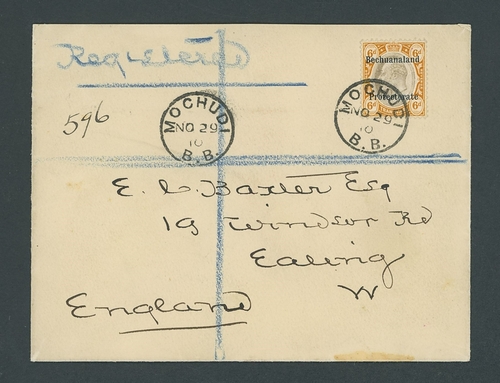 Registered
6d 6d
Bechuanaland
Protectorate
6d 6d
596
MOCHUDI
NO 29
10
B.B.
MOCHUDI
NO 29
10
B.B.
E. C. Baxter Esq
19 Windsor Rd
Ealing
W
England